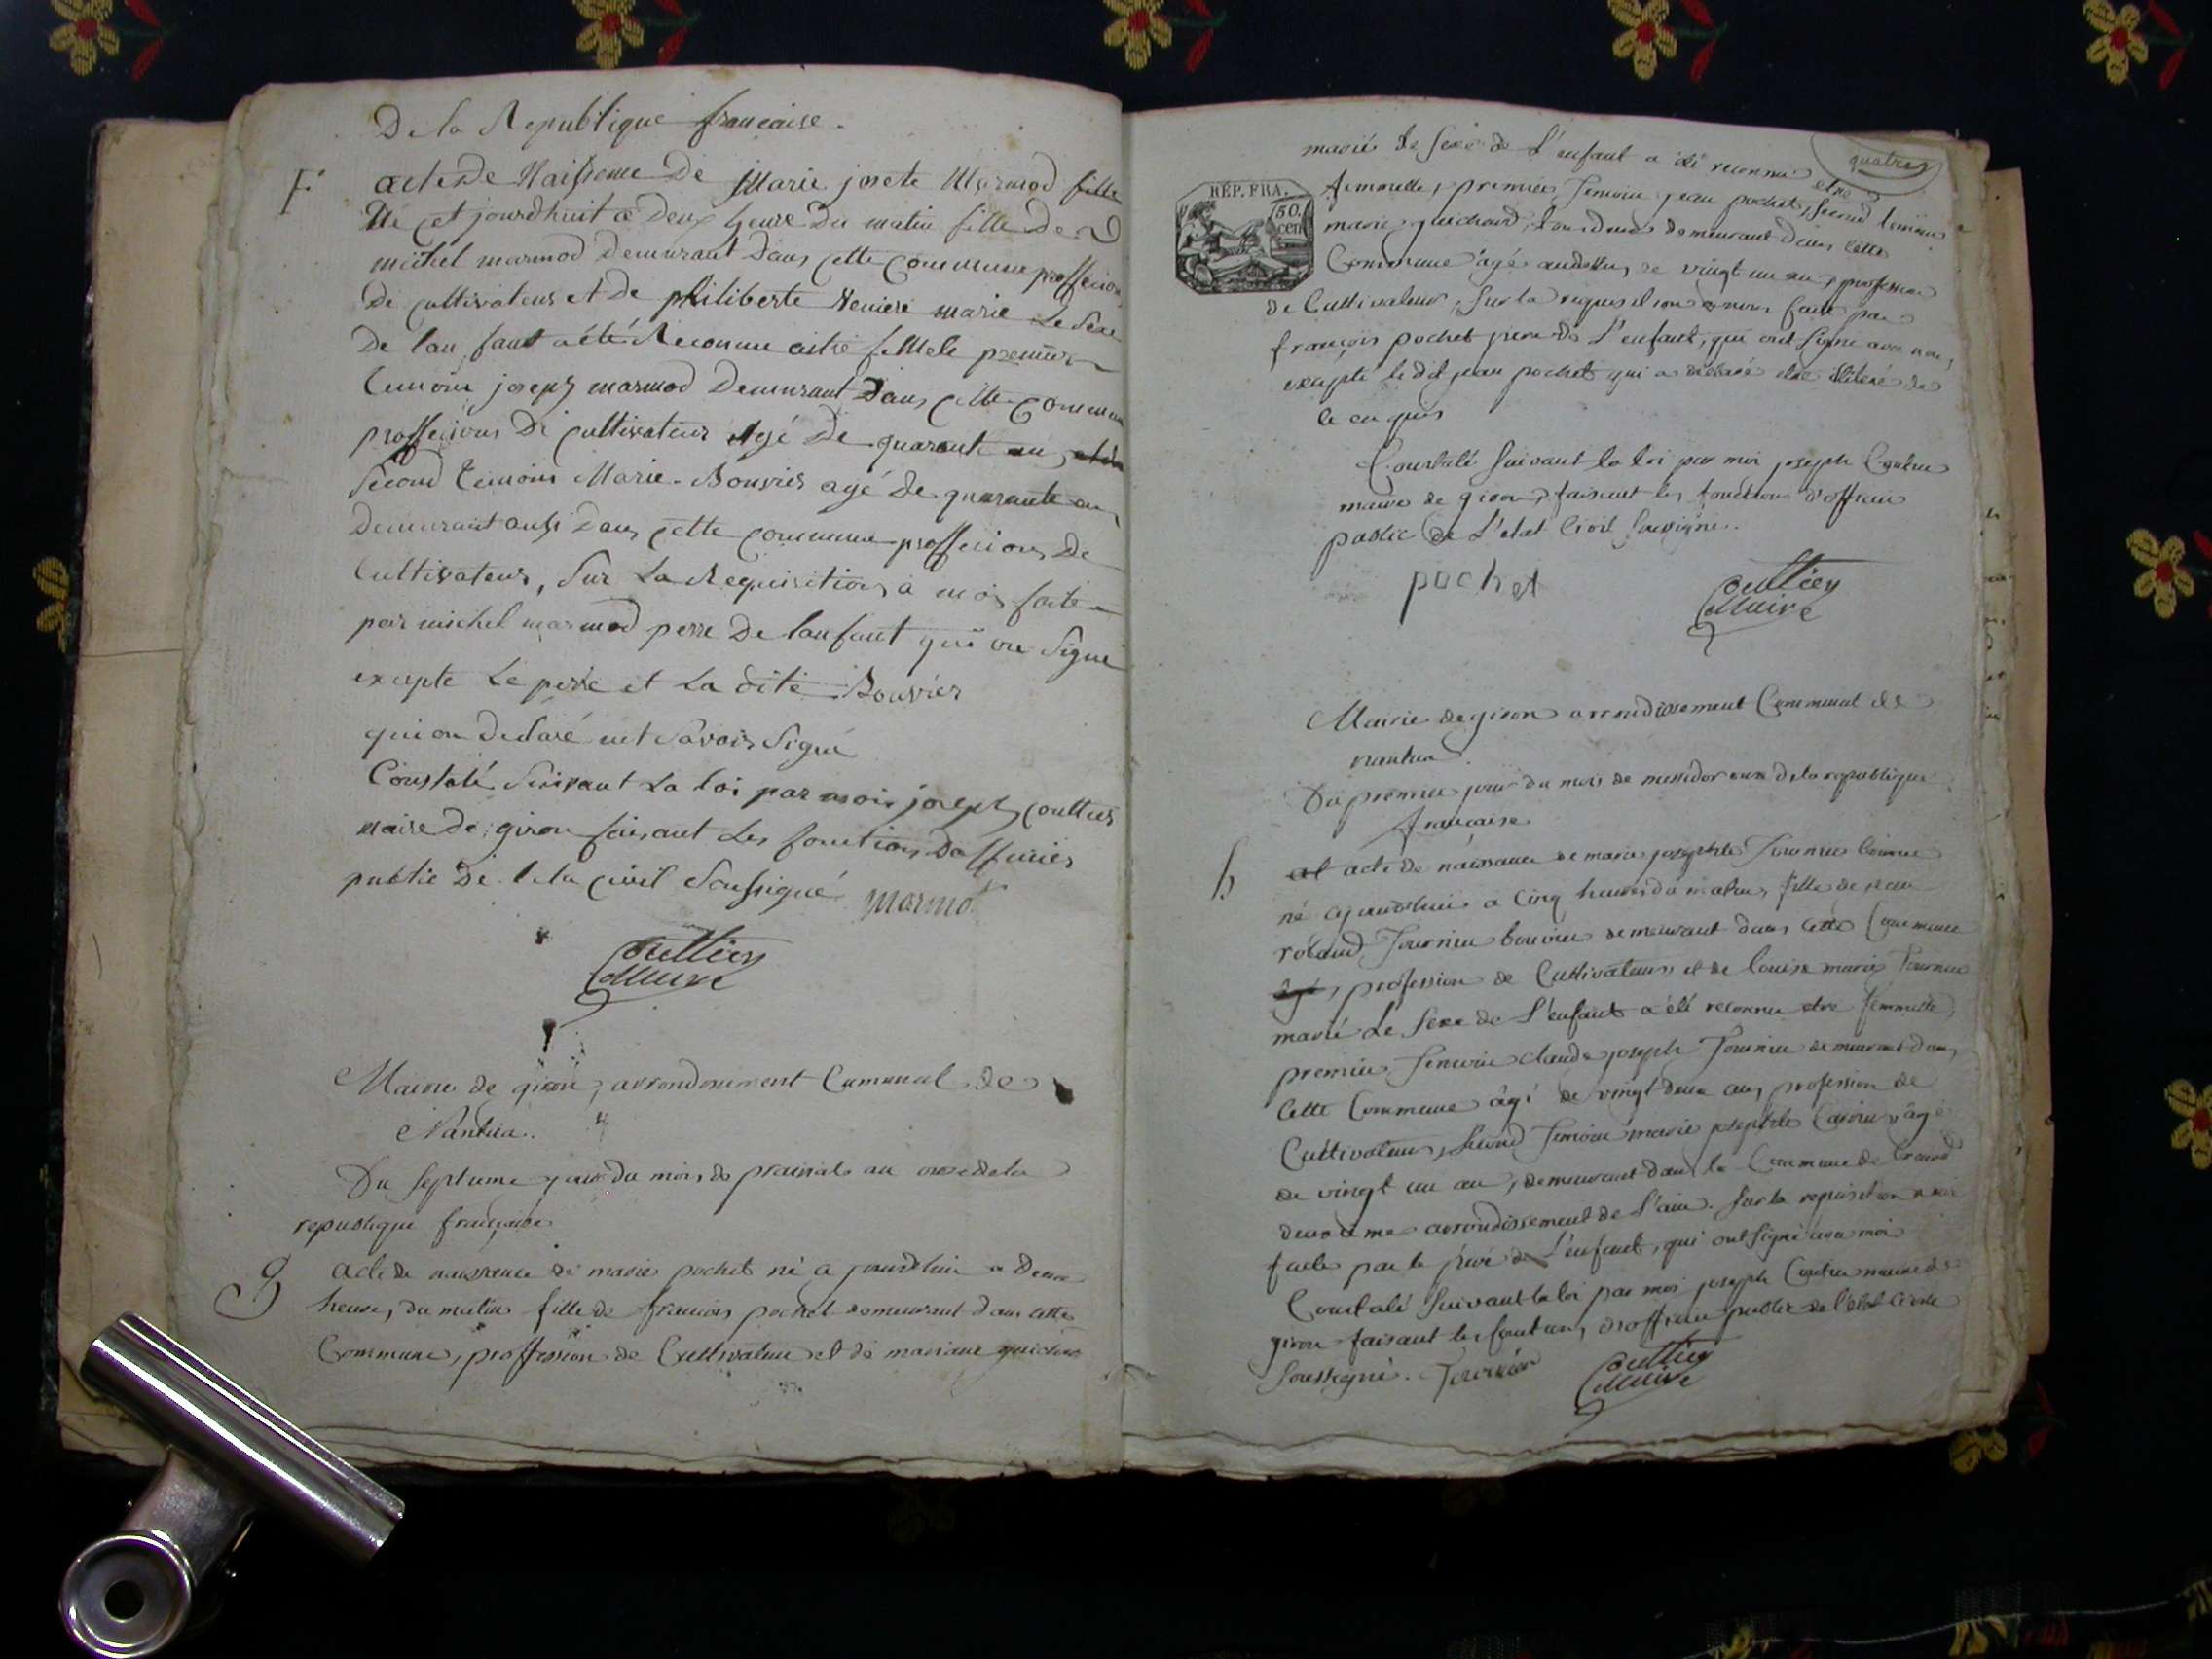 De la Republique francaise.
F acte De Naissence De Marie josete Marmod fille
Né cet jourdhuit a Deux heure Du matin fille De
michel marmod Demurant Dans cette Commune proffecion
De cultivateur et De philiberte marie Le Sexe
De lan fant a été Reconnu estre fillele premier
temoin joseph marmod Demurant Dans cette Commune
proffecions De cultivateur Agé De quarante an
Second temoins Marie Bouvier agé De quarante an
Demurant ausi Dans cette Commune proffecions De
Cultivateur, Sur La Requisitions à mois faite
par michel marmod perre De lanfant qui on Signé
excepte Le perre et La dite Bouvier
qui on Declaré net Savoir Signé
Constaté Suivant La loi par mois joseph coultier
maire De giron faisant Les fonctions Dofficier
public De leta civil Soussigné marmod
Coultier
Maire
Mairie de giron, arrondissement Communal de
Nantua.
Du septieme jour du mois de prairial an onze de la
republique française
g acte de naissance de marie pochet né a jourdhui a Deux
heures du matin fille de francois pochet demeurant dans cette
Commune, proffession de Cultivateur et de mariane guichard
quatre
marié le sexe de L'enfant a été reconnu etre
RÉP. FRA.
50.
cen
femmelle, premier temoin jean pochet, second temoin
marie guichard, tous deux demeurant dans cette
Commune âgé audessus de vingt un ans, profession
de Cultivateur, sur la requisition a nous faite par
françois pochet pere de L'enfant, qui ont signé avec nous,
excepté le dit jean pochet qui a déclaré etre illiteré de
ce enquis
Constaté suivant la loi par moi joseph Coultier
maire de giron, faisant les fonctions d'officier
public de L'etat Civil soussigné.
pochet
Coultier
Maire
Mairie de giron arrondissement Communal de
nantua
Du premier jour du mois de messidor onze de la republique
francaise
h at acte de naissance de marie josephte Tournier bouvier
né ajourdhui a Cinq heures du matin, fille de jean
roland Tournier bouvier demeurant dans cette Commune
agé, profession de Cultivateur et de louise marie Tournier
marié Le sexe de L'enfant a été reconnu etre femmelle,
premier temoin claude joseph Tournier demeurant dans
cette Commune âgé de vingt deux ans, profession de
Cultivateur, second temoin marie josephte âgé
de vingt un an, demeurant dans la Commune de
deuxieme arrondissement de l'ain. sur la requisition a moi
faite par le père de L'enfant, qui ont signé avec moi
Constaté suivant la loi par moi joseph Coultier maire de
giron faisant les fonctions d'officier public de l'état civil
soussigné. Tournier
Coultier
Maire